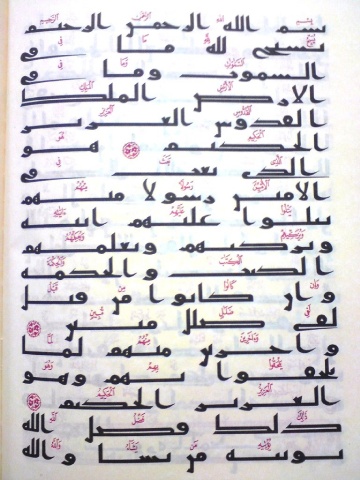 بسم الله الرحمن الرحيم
يسبح لله ما في
السموت وما في
الارض الملك
القدوس العزيز
الحكيم هو
الذي بعث في
الامين رسولا منهم
يتلوا عليهم ايته
ويزكيهم ويعلمهم
الكتب والحكمة
وان كانوا من قبل
لفي ضلل مبين
واخرين منهم لما
يلحقوا بهم وهو
العزيز الحكيم
ذلك فضل الله
يوتيه من يشا والله